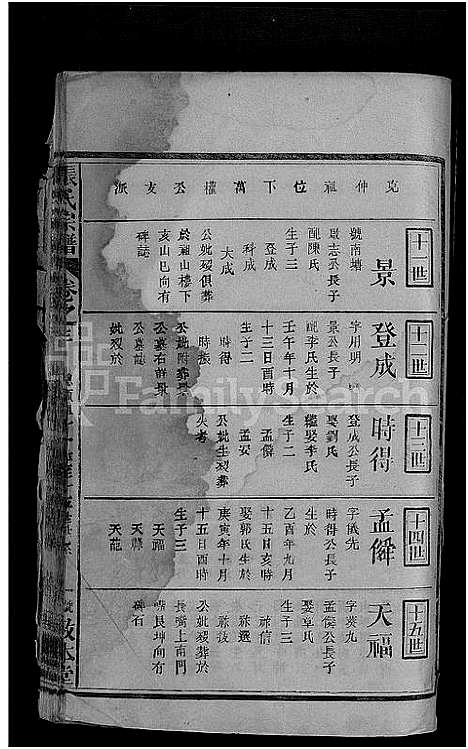 克仲祖位下萬權公支派
十一世
景
號南塘
啟志公長子
配陳氏
生子三
登成
科成
大成
公妣歿俱葬
於祖山樓下
亥山巳向有
碑誌
十二世
登成
字用明
景公長子
配李氏生於
壬午年十月
十三日酉時
生子二
時得
時旌
公妣附葬景
公墓右詳景
公墓誌
妣歿於
十三世
時得
登成公長子
娶劉氏
繼娶李氏
生子二
孟僻
孟安
公妣生歿葬
失考
十四世
孟僻
字儀先
時得公長子
生於
乙酉年九月
十五日亥時
娶郭氏生於
庚寅年十月
十五日酉時
生子三
天福
天爵
天龍
十五世
天福
字癸九
孟僻公長子
娶卓氏
生子三
祿信
祿選
祿技
公妣歿葬於
長嘴上南門
嘴艮坤向有
碑石
張氏宗譜
敦本堂
FamilySearch